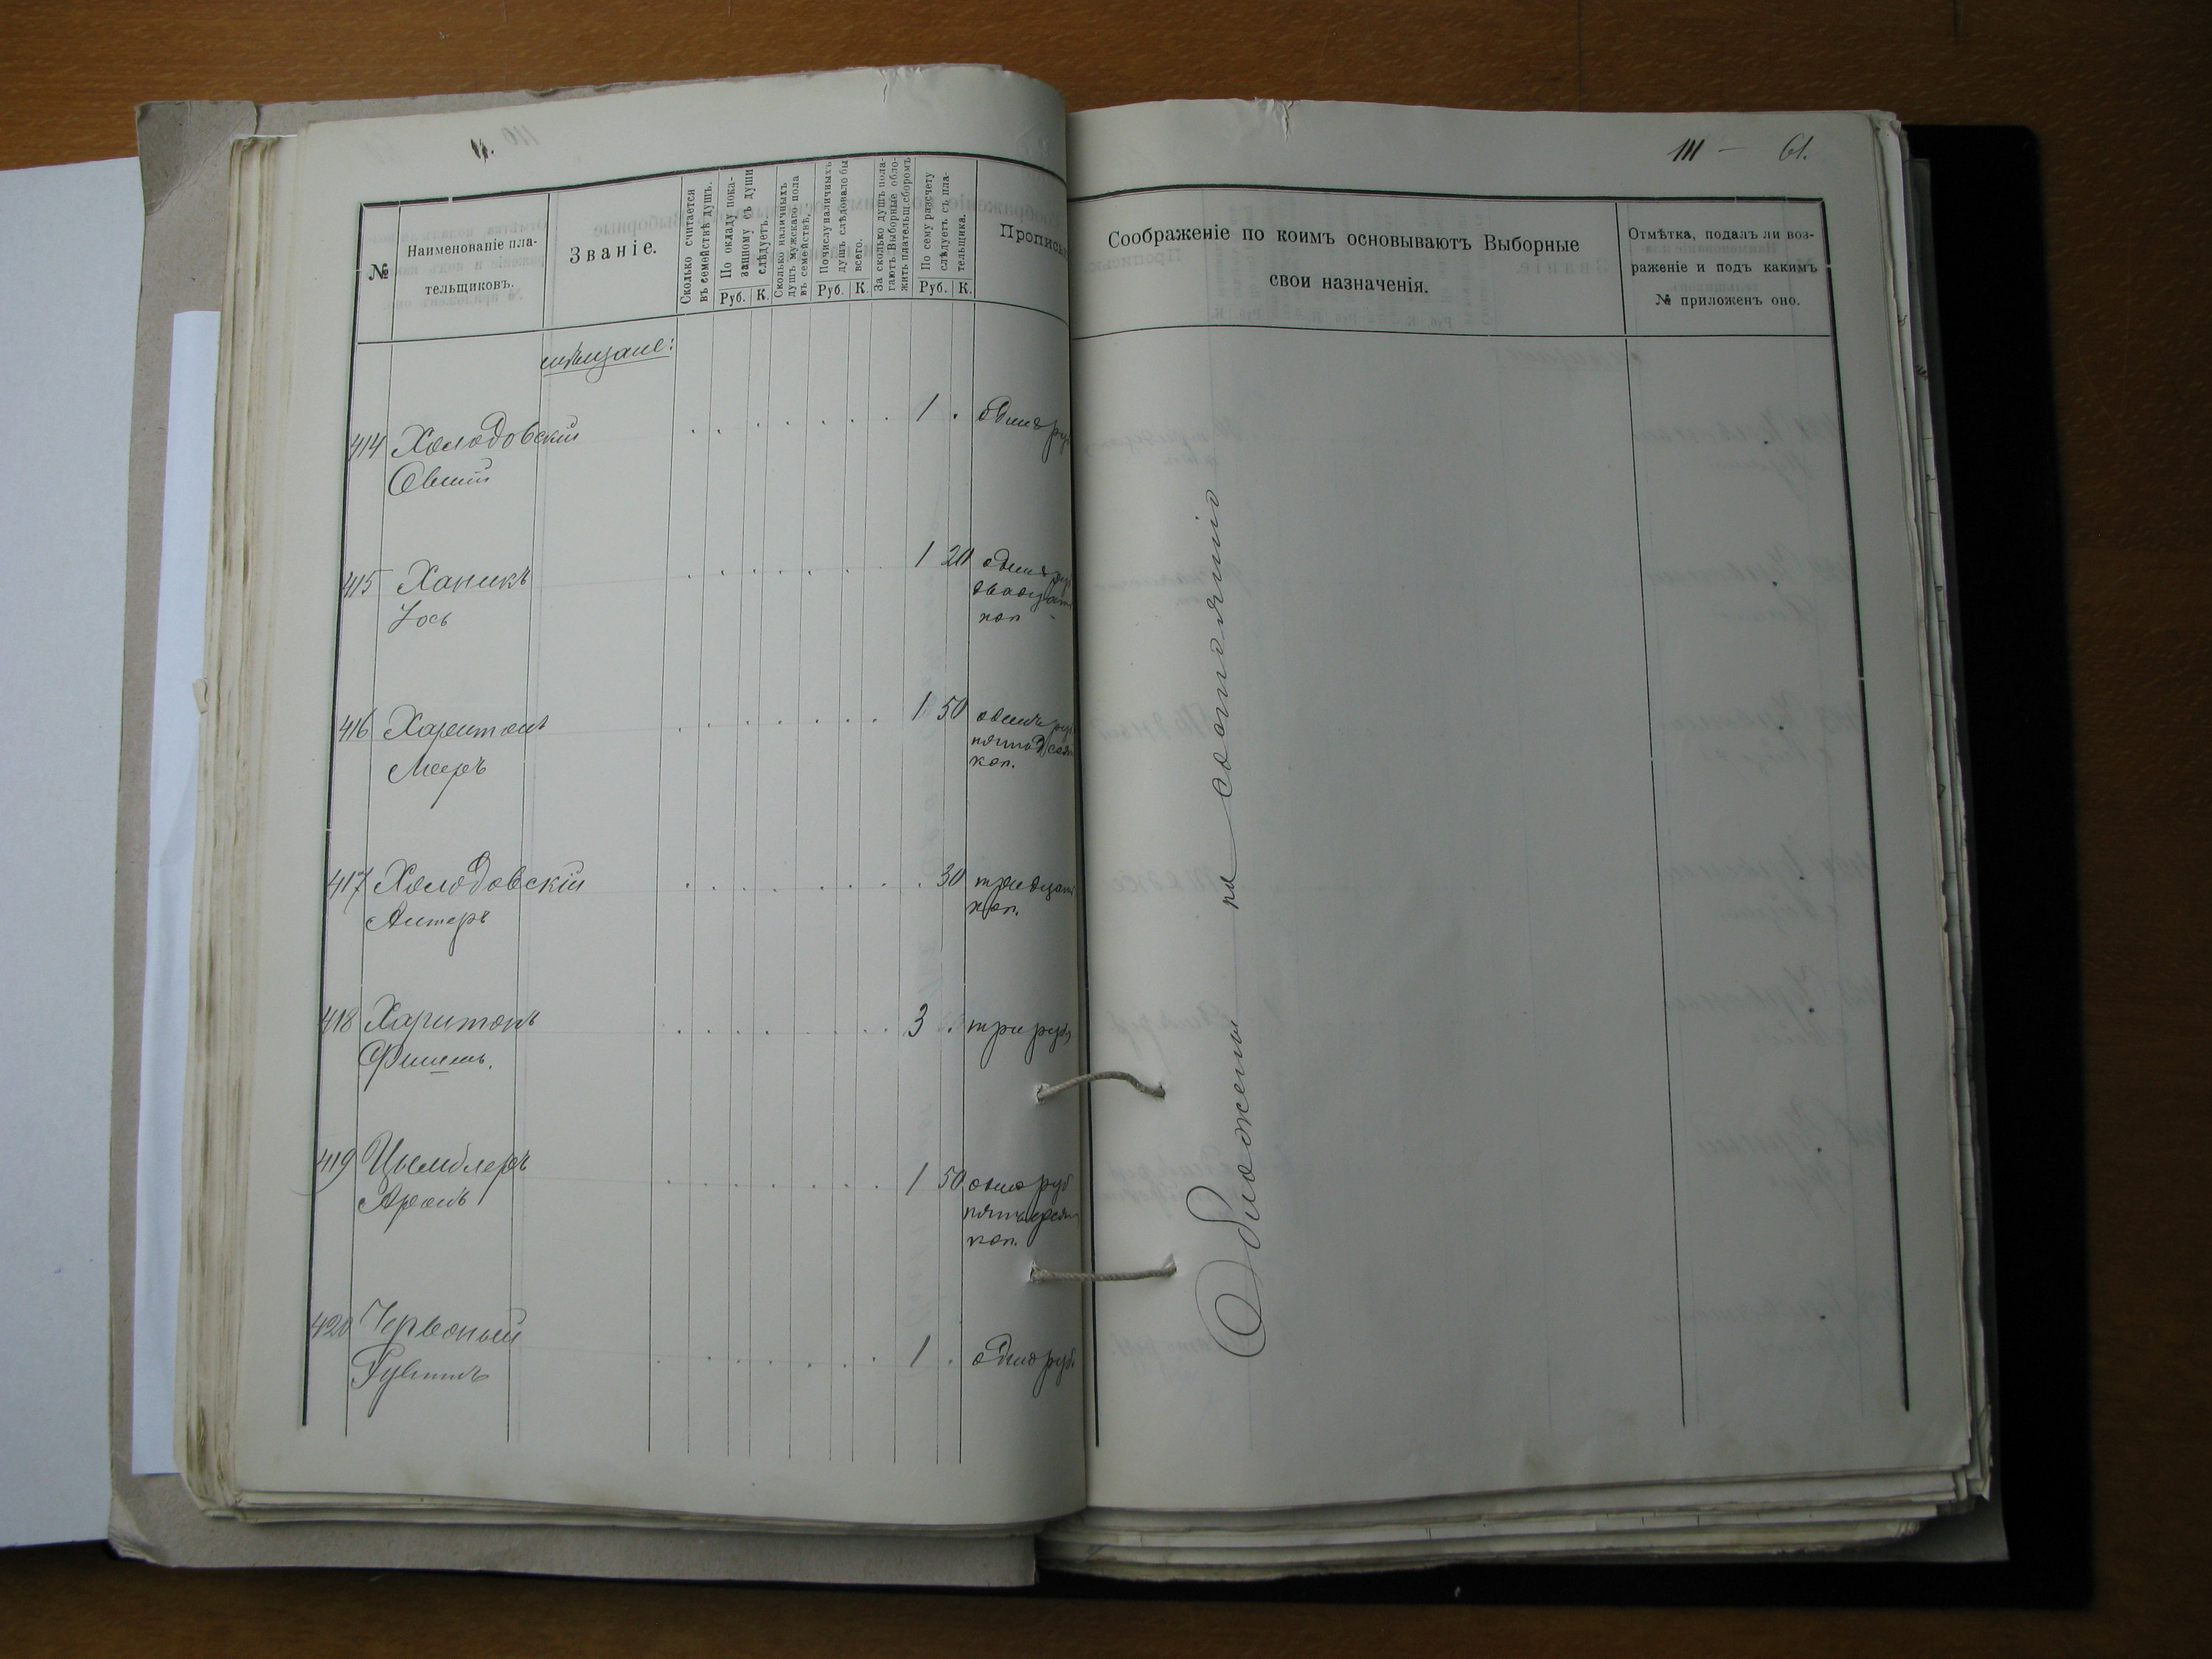 111 — 61.
№
Наименованіе пла-
тельщиковъ.
Званіе.
Сколько считается
въ семействѣ душъ.
По окладу пока-
занному съ души
слѣдуетъ.
Руб. К.
Сколько наличныхъ
душъ мужскаго пола
въ семействѣ.
По числу наличныхъ
душъ слѣдовало бы
всего.
Руб. К.
За сколько душъ пола-
гаютъ Выборные обло-
жить плательщ. сборомъ
По сему разсчету
слѣдуетъ съ пла-
тельщика.
Руб. К.
Прописью
Соображеніе по коимъ основываютъ Выборные
свои назначенія.
Отмѣтка, подалъ ли воз-
раженіе и подъ какимъ
№ приложенъ оно.
мѣщане:
414 Холодовскій 1 . одинъ руб
415 Ханикъ 1 20 одинъ руб
Іось двадцать
коп
416 Харитонъ 1 50 одинъ руб
Мееръ пятьдесят
коп.
417 Холодовскій 30 тридцать
коп.
418 Харитонъ 3 . три руб
Фишель.
419 Цымблеръ 1 50 один руб
Аронъ пятьдесят
коп.
420 Червоный 1 . один руб.
Рувинъ
Обложены по состоянію